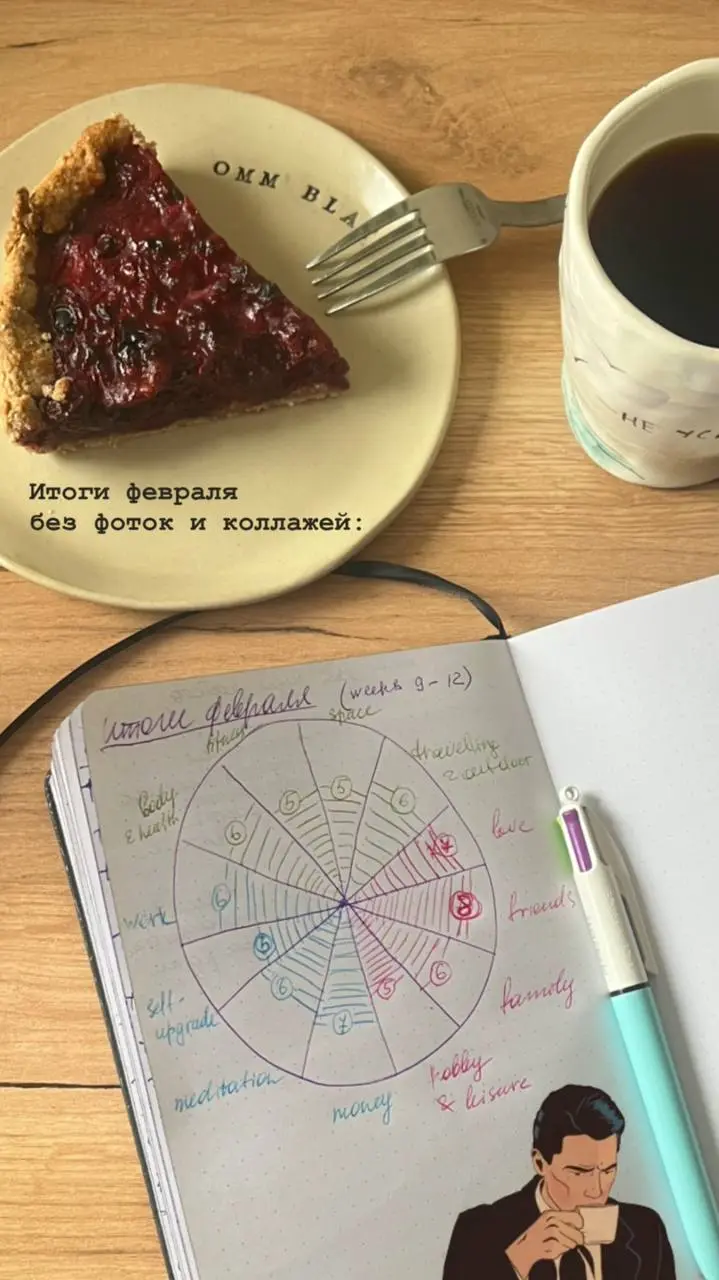 OMM BLA
НЕ УСЛ
Итоги февраля
без фоток и коллажей:
итоги февраля (weeks 9-12)
space
travelling
& outdoor
body
& health
5
5
6
6
love
7
work
6
8
friends
5
6
5
6
family
self-
upgrade
7
meditation
money
hobby
& leisure